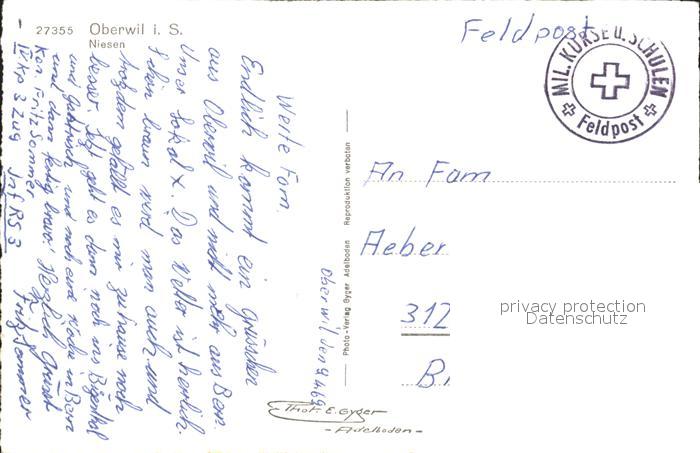 27355 Oberwil i. S.
Niesen
Feldpost
MIL. KURSE u. SCHULEN
Feldpost
Oberwil den 9.4.69
Werte Fam.
Endlich kommt ein Grüsschen
aus Oberwil und nicht mehr aus Bern
Unser Lokal x. Das Wetter ist herrlich.
Schön braun wird man auch und
trozdem gefällt es mir zuhause noch
besser. Jetzt geht es dann noch ins
und und noch eine Woche in Bern
und dann fertig. Herzlich Grüsst
Fritz Sommer
Kan. Fritz Sommer
IV Kp 3 Zug Inf RS 3
Reproduktion verboten
Photo-Verlag Gyger Adelboden
An Fam
Aeber
312
B
privacy protection
Datenschutz
Phot. E. Gyger
- Adelboden -